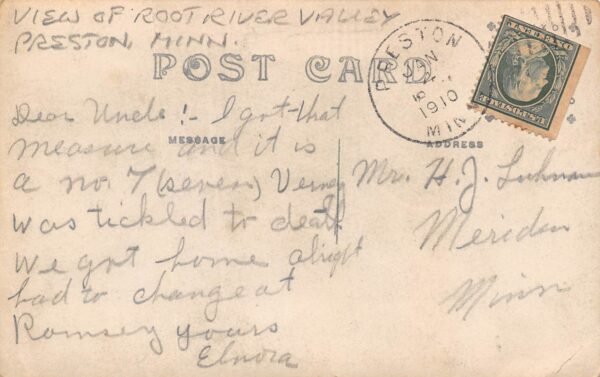 VIEW OF ROOT RIVER VALLEY
PRESTON, MINN.
POST CARD
PRESTON
JUN
1910
MIN
MESSAGE
ADDRESS
Dear Uncle! - I got that
measure and it is
a no. 7 (seven) Verne
was tickled to death
We got home alright
had to change at
Ramsey yours
Elnora
Mr. H. J.
Meriden
Minn